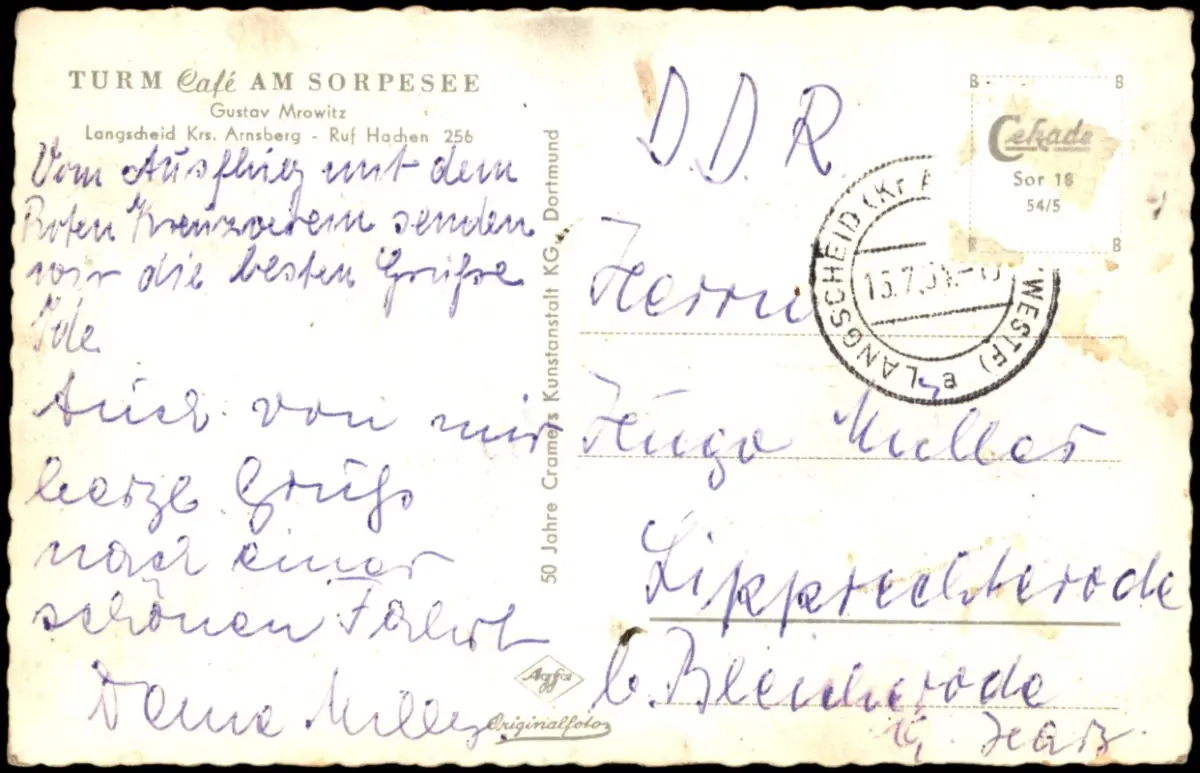 TURM Café AM SORPESEE
Gustav Mrowitz
Langscheid Krs. Arnsberg - Ruf Hachen 256
Vom Ausflug mit dem
Roten Kreuzverein senden
wir die besten Grüße
Ide
Auch von mir
herzl Gruß
nach einer
schönen Fahrt
Müller
50 Jahre Cramers Kunstanstalt KG., Dortmund
Agfa
Originalfotos
D. D. R
B B
Cekade
Sor 18
54/5
B B
LANGSCHEID (Kr WESTF)
Herrn
Hugo Müller
Lipprechterode
b. Bleicherode
Harz